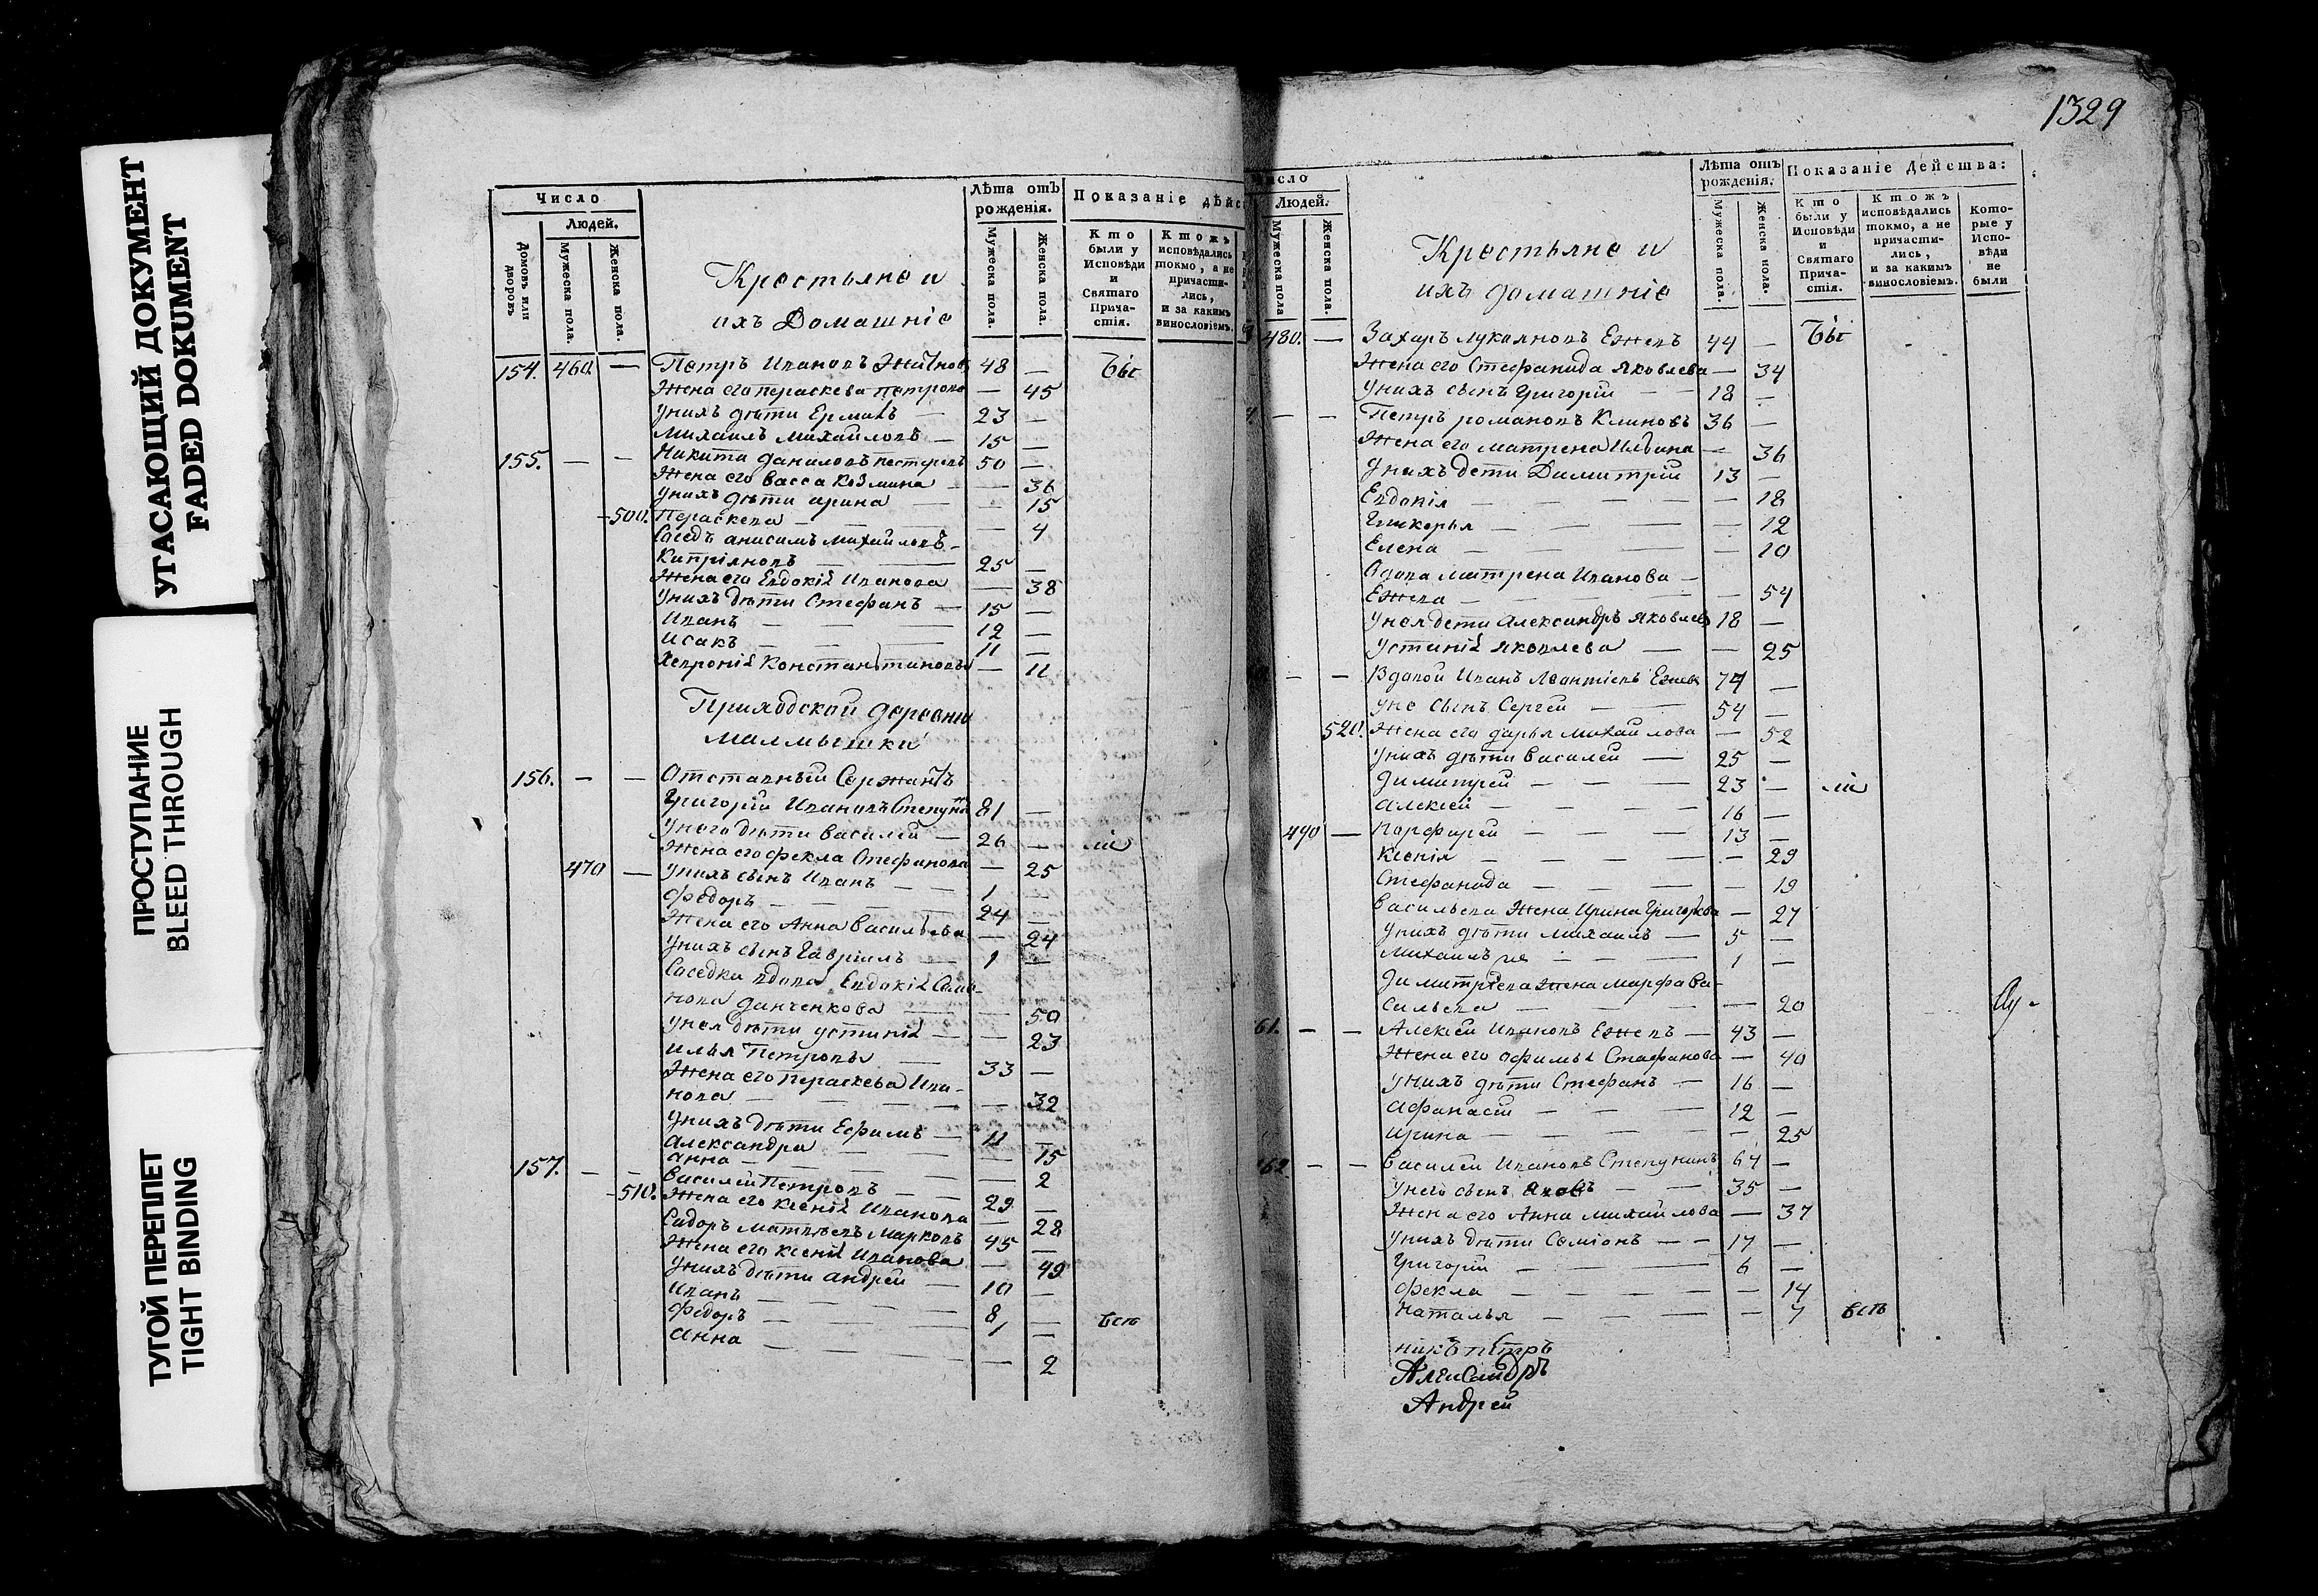 УГАСАЮЩИЙ ДОКУМЕНТ
FADED DOKUMENT
ПРОСТУПАНИЕ
BLEED THROUGH
ТУГОЙ ПЕРЕПЛЕТ
TIGHT BINDING
Число
Людей.
Домовъ или дворовъ
Мужеска пола.
Женска пола.
Крестьяне и
ихъ Домашніе
Лѣта отъ рожденія.
Мужеска пола.
Женска пола.
Показаніе дѣйс
Кто были у Исповѣди и Святаго Причастія.
Ктожъ исповѣдались токмо, а не причастились, и за какимъ винословіемъ.
154. 460. — Петръ Ивановъ 48 — Бы
Жена его Пераскева Петрова — 45
У нихъ дѣти Ермилъ — 23 —
Михаилъ Михайловъ — 15 —
155. — — Никита Даниловъ Пестеревъ 50 —
Жена его Васса Козмина — — 36
У нихъ дѣти Ирина — — 15
500. Пераскева — — — 4
Соседъ Анисимъ Михайловъ
Кипріяновъ — — 25 —
Жена его Евдокія Иванова — 38
У нихъ дѣти Стефанъ — 15 —
Иванъ — — — 12 —
Исакъ — — — 11 —
Хевронія Константинова — 11
Приходской деревни
Малмышки
156. — — Отставный Сержантъ
Григорій Ивановъ Степунинъ 81 —
У него дѣти Василей — 26 — ли
Жена его Фекла Стефанова — 25
470 — У нихъ сынъ Иванъ — — 1 —
Федоръ — — — 24 —
Жена его Анна Васильева — 24
У нихъ сынъ Гавріилъ — 1 —
Соседка вдова Евдокія Симо-
нова Данченкова — — 50
У нея дѣти Устинія — — 23
Илья Петровъ — 33 —
Жена его Пераскева Ива-
нова — — — — 32
У нихъ дѣти Ефимъ — 11 —
Александра — — — 15
157. — — Анна — — — — 2
Василей Петровъ — — 29 —
510. Жена его Ксенія Иванова — 28
Сидоръ Матвѣевъ Марковъ 45 —
Жена его Ксенія Иванова — 49
У нихъ дѣти Андрей — 10 —
Иванъ — — — — 8 —
Федоръ — — — — 1 — всѣ
Анна — — — — — 2
1329
Число
Людей.
Мужеска пола
Женска пола.
Крестьяне и
ихъ домашніе
Лѣта отъ рожденія.
Мужеска пола.
Женска пола.
Показаніе Действа:
Кто были у Исповѣди и Святаго Причастія.
Ктожъ исповѣдались токмо, а не причастились, и за какимъ винословіемъ.
Которые у Исповѣди не были
480. — Захаръ Лукаяновъ Ежевъ 44 — Бы
Жена его Стефанида Яковлева — 34
У нихъ сынъ Григорій — — 18 —
— — Петръ Романовъ Климовъ 36 —
Жена его Матрена Ильина — 36
У нихъ дети Димитрій 13 —
Евдокія — — — — 18
Гликерья — — — — 12
Елена — — — — 10
Вдова Матрена Иванова —
Ежева — — — — 54
У нея дети Александръ Яковлевъ 18 —
Устинія Яковлева — — 25
— — Вдовой Иванъ Леонтіевъ Ежевъ 74 —
У не сынъ Сергей — — 54 —
520. Жена его Дарья Михайлова — 52
У нихъ дѣти Василей — 25 —
Димитрей — — — 23 — ли
Алексей — — — 16 —
490 — Порфирей — — — 13 —
Ксенія — — — — — 29
Стефанида — — — — 19
Васильева Жена Ирина Григорьева — 27
У нихъ дѣти Михаилъ — 5 —
Михаилъ — — — 1 —
Димитріева Жена Марфа Ва-
сильева — — — 20
61. — — Алексей Ивановъ Ежевъ — 43 —
Жена его Афимья Стефанова — 40
У нихъ дѣти Стефанъ — 16 —
Афанасій — — — 12 —
Ирина — — — — 25
62 — — Василей Ивановъ Степунинъ 64 —
У него сынъ Яковъ — — 35 —
Жена его Анна Михайлова — 37
У нихъ дѣти Семіонъ — — 17 —
Григорій — — — 6 —
Фекла — — — — — 14
Наталья — — — — 7 всѣ
никъ Петръ
Александръ
Андрей